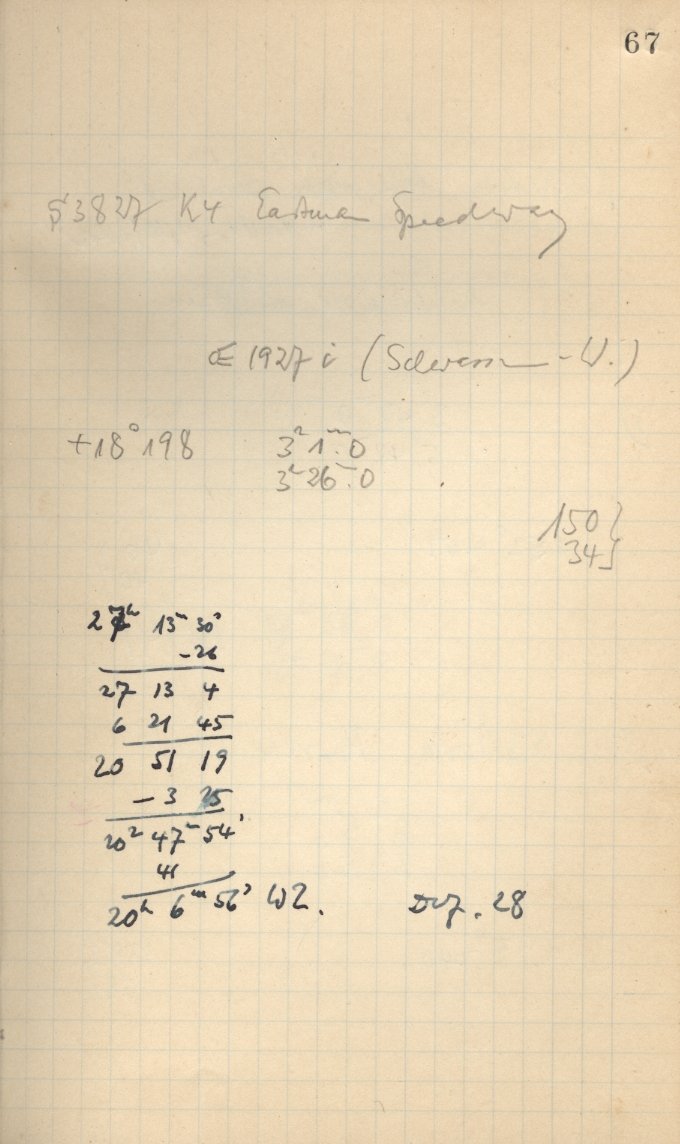 67
3827 K4 Eastman Speedway
☄ 1927 i (Schwassm - W.)
+18°198 3ʰ1ᵐ.0
3ʰ26ᵐ.0
150}
34}
27ʰ 13ᵐ 30ˢ
-26
27 13 4
6 21 45
20 51 19
-3 25
20ʰ 47ᵐ 54ˢ
41
20ʰ 6ᵐ 56ˢ WZ. Dif. 28